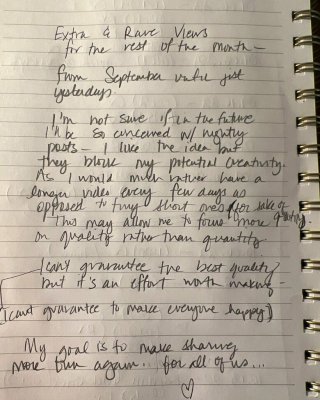 Extra & Rare Views
for the rest of the month –
from September until just
yesterdays.
I'm not sure if in the future
I'll be so concerned w/ nightly
posts – I like the idea but
they block my potential creativity.
As I would much rather have a
longer video every few days as
opposed to tiny short ones for sake of quantity.
This may allow me to focus more
on quality rather than quantity
I can't guarantee the best quality
but it's an effort worth making –
(I can't guarantee to make everyone happy)
My goal is to make sharing
more fun again... for all of us...
♡